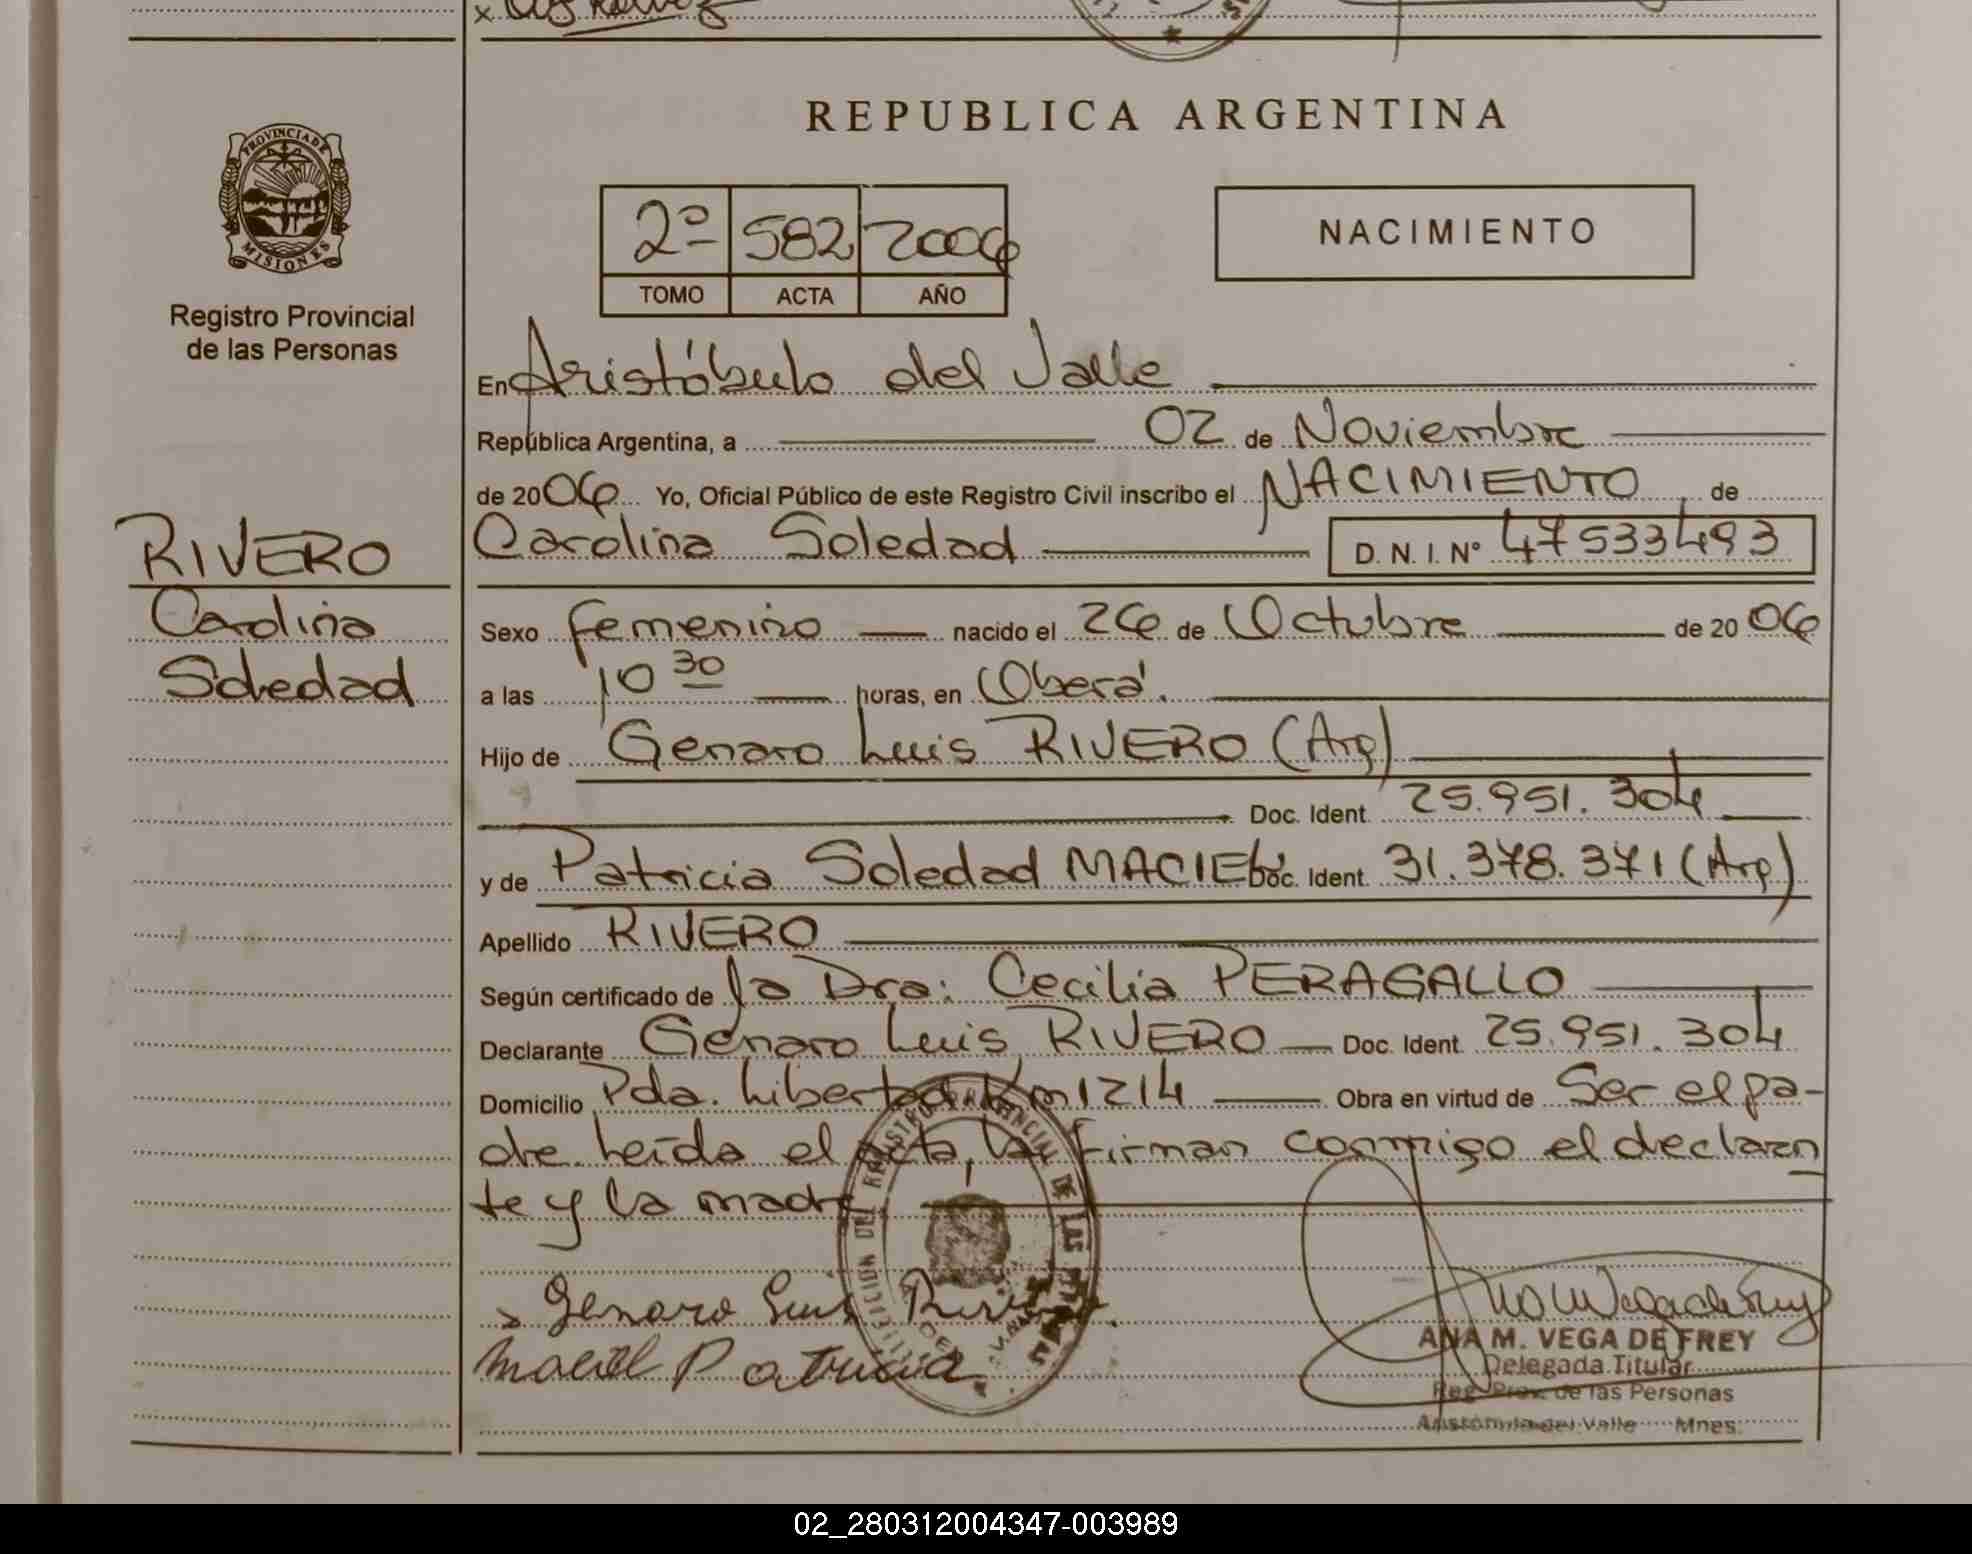 REPUBLICA ARGENTINA
PROVINCIA DE MISIONES
Registro Provincial
de las Personas
2º 582 2006
TOMO ACTA AÑO
NACIMIENTO
En Aristóbulo del Valle
República Argentina, a 02 de Noviembre
de 2006 Yo, Oficial Público de este Registro Civil inscribo el NACIMIENTO de
RIVERO
Carolina
Soledad
Carolina Soledad D. N. I. Nº 47533493
Sexo femenino nacido el 26 de Octubre de 2006
a las 10 30 horas, en Oberá.
Hijo de Genaro Luis RIVERO (Arg)
Doc. Ident. 25.951.304
y de Patricia Soledad MACIEL Doc. Ident. 31.378.371 (Arg)
Apellido RIVERO
Según certificado de la Dra. Cecilia PERAGALLO
Declarante Genaro Luis RIVERO Doc. Ident. 25.951.304
Domicilio Pda. Libertad Km 1214 Obra en virtud de Ser el pa-
dre. Leída el acta, la firman conmigo el declaran
te y la madre
Genaro Luis Rivero
Maciel Patricia
ANA M. VEGA DE FREY
Delegada Titular
Reg. Prov. de las Personas
Aristóbulo del Valle Mnes.
02_280312004347-003989